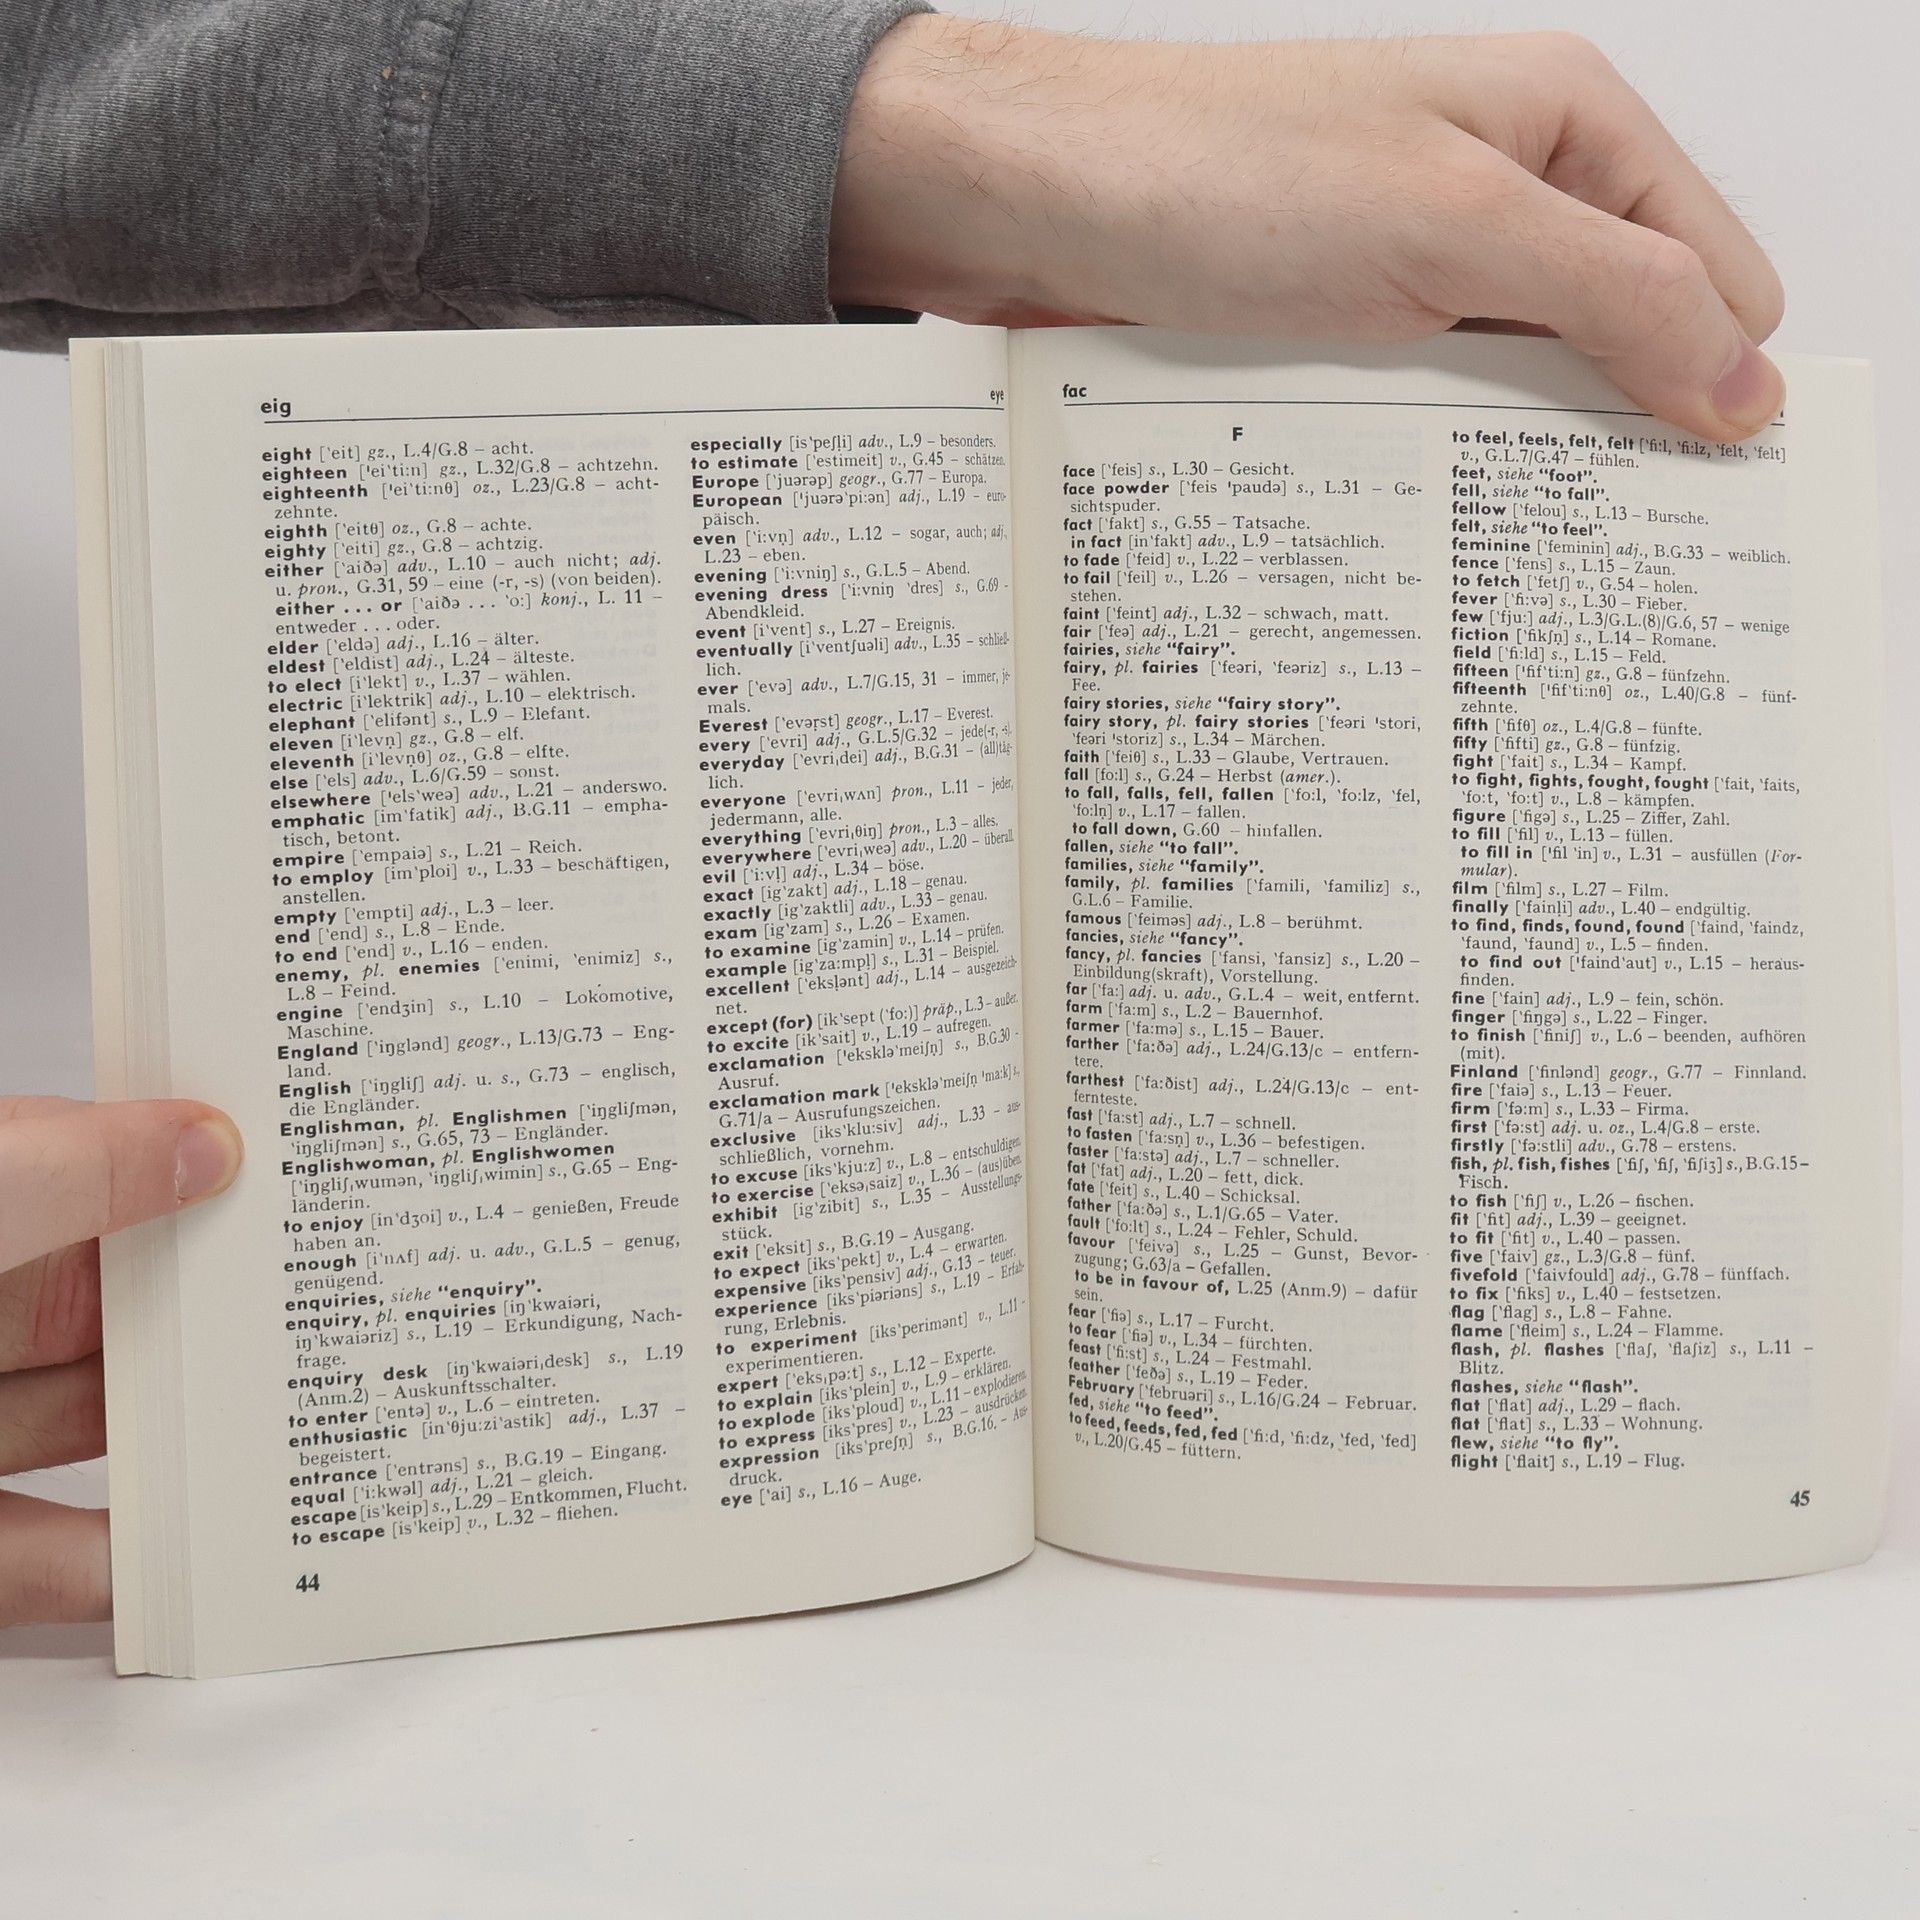 eig
eye
eight ['eit] gz., L.4/G.8 – acht.
eighteen ['ei'ti:n] gz., L.32/G.8 – achtzehn.
eighteenth ['ei'ti:nθ] oz., L.23/G.8 – acht-
zehnte.
eighth ['eitθ] oz., G.8 – achte.
eighty ['eiti] gz., G.8 – achtzig.
either ['aiðə] adv., L.10 – auch nicht; adj.
u. pron., G.31, 59 – eine (-r, -s) (von beiden).
either . . . or ['aiðə . . . 'o:] konj., L. 11 –
entweder . . . oder.
elder ['eldə] adj., L.16 – älter.
eldest ['eldist] adj., L.24 – älteste.
to elect [i'lekt] v., L.37 – wählen.
electric [i'lektrik] adj., L.10 – elektrisch.
elephant ['elifənt] s., L.9 – Elefant.
eleven [i'levn̩] gz., G.8 – elf.
eleventh [i'levn̩θ] oz., G.8 – elfte.
else ['els] adv., L.6/G.59 – sonst.
elsewhere ['els'weə] adv., L.21 – anderswo.
emphatic [im'fatik] adj., B.G.11 – empha-
tisch, betont.
empire ['empaiə] s., L.21 – Reich.
to employ [im'ploi] v., L.33 – beschäftigen,
anstellen.
empty ['empti] adj., L.3 – leer.
end ['end] s., L.8 – Ende.
to end ['end] v., L.16 – enden.
enemy, pl. enemies ['enimi, 'enimiz] s.,
L.8 – Feind.
engine ['endʒin] s., L.10 – Lokomotive,
Maschine.
England ['iŋglənd] geogr., L.13/G.73 – Eng-
land.
English ['iŋgliʃ] adj. u. s., G.73 – englisch,
die Engländer.
Englishman, pl. Englishmen ['iŋgliʃmən,
'iŋgliʃmən] s., G.65, 73 – Engländer.
Englishwoman, pl. Englishwomen
['iŋgliʃˌwumən, 'iŋgliʃˌwimin] s., G.65 – Eng-
länderin.
to enjoy [in'dʒoi] v., L.4 – genießen, Freude
haben an.
enough [i'nʌf] adj. u. adv., G.L.5 – genug,
genügend.
enquiries, siehe “enquiry”.
enquiry, pl. enquiries [iŋ'kwaiəri,
iŋ'kwaiəriz] s., L.19 – Erkundigung, Nach-
frage.
enquiry desk [iŋ'kwaiəriˌdesk] s., L.19
(Anm.2) – Auskunftsschalter.
to enter ['entə] v., L.6 – eintreten.
enthusiastic [in'θju:zi'astik] adj., L.37 –
begeistert.
entrance ['entrəns] s., B.G.19 – Eingang.
equal ['i:kwəl] adj., L.21 – gleich.
escape [is'keip] s., L.29 – Entkommen, Flucht.
to escape [is'keip] v., L.32 – fliehen.
44
especially [is'peʃl̩i] adv., L.9 – besonders.
to estimate ['estimeit] v., G.45 – schätzen.
Europe ['juərəp] geogr., G.77 – Europa.
European ['juərə'pi:ən] adj., L.19 – euro-
päisch.
even ['i:vn̩] adv., L.12 – sogar, auch; adj.,
L.23 – eben.
evening ['i:vniŋ] s., G.L.5 – Abend.
evening dress ['i:vniŋ 'dres] s., G.69 –
Abendkleid.
event [i'vent] s., L.27 – Ereignis.
eventually [i'ventʃuəli] adv., L.35 – schließ-
lich.
ever ['evə] adv., L.7/G.15, 31 – immer, je-
mals.
Everest ['evər̩st] geogr., L.17 – Everest.
every ['evri] adj., G.L.5/G.32 – jede(-r, -s).
everyday ['evriˌdei] adj., B.G.31 – (all)täg-
lich.
everyone ['evriˌwʌn] pron., L.11 – jeder,
jedermann, alle.
everything ['evriˌθiŋ] pron., L.3 – alles.
everywhere ['evriˌweə] adv., L.20 – überall.
evil ['i:vl̩] adj., L.34 – böse.
exact [ig'zakt] adj., L.18 – genau.
exactly [ig'zaktli] adv., L.33 – genau.
exam [ig'zam] s., L.26 – Examen.
to examine [ig'zamin] v., L.14 – prüfen.
example [ig'za:mpl̩] s., L.31 – Beispiel.
excellent ['eksl̩ənt] adj., L.14 – ausgezeich-
net.
except (for) [ik'sept ('fo:)] präp., L.3 – außer.
to excite [ik'sait] v., L.19 – aufregen.
exclamation ['eksklə'meiʃn̩] s., B.G.30 –
Ausruf.
exclamation mark ['eksklə'meiʃn̩ 'ma:k] s.,
G.71/a – Ausrufungszeichen.
exclusive [iks'klu:siv] adj., L.33 – aus-
schließlich, vornehm.
to excuse [iks'kju:z] v., L.8 – entschuldigen.
to exercise ['eksəˌsaiz] v., L.36 – (aus)üben.
exhibit [ig'zibit] s., L.35 – Ausstellungs-
stück.
exit ['eksit] s., B.G.19 – Ausgang.
to expect [iks'pekt] v., L.4 – erwarten.
expensive [iks'pensiv] adj., G.13 – teuer.
experience [iks'piəriəns] s., L.19 – Erfah-
rung, Erlebnis.
to experiment [iks'perimənt] v., L.11 –
experimentieren.
expert ['eksˌpə:t] s., L.12 – Experte.
to explain [iks'plein] v., L.9 – erklären.
to explode [iks'ploud] v., L.11 – explodieren.
to express [iks'pres] v., L.23 – ausdrücken.
expression [iks'preʃn̩] s., B.G.16. – Aus-
druck.
eye ['ai] s., L.16 – Auge.
fac
F
face ['feis] s., L.30 – Gesicht.
face powder ['feis 'paudə] s., L.31 – Ge-
sichtspuder.
fact ['fakt] s., G.55 – Tatsache.
in fact [in'fakt] adv., L.9 – tatsächlich.
to fade ['feid] v., L.22 – verblassen.
to fail ['feil] v., L.26 – versagen, nicht be-
stehen.
faint ['feint] adj., L.32 – schwach, matt.
fair ['feə] adj., L.21 – gerecht, angemessen.
fairies, siehe “fairy”.
fairy, pl. fairies ['feəri, 'feəriz] s., L.13 –
Fee.
fairy stories, siehe “fairy story”.
fairy story, pl. fairy stories ['feəri 'stori,
'feəri 'storiz] s., L.34 – Märchen.
faith ['feiθ] s., L.33 – Glaube, Vertrauen.
fall [fo:l] s., G.24 – Herbst (amer.).
to fall, falls, fell, fallen ['fo:l, 'fo:lz, 'fel,
'fo:ln̩] v., L.17 – fallen.
to fall down, G.60 – hinfallen.
fallen, siehe “to fall”.
families, siehe “family”.
family, pl. families ['famili, 'familiz] s.,
G.L.6 – Familie.
famous ['feiməs] adj., L.8 – berühmt.
fancies, siehe “fancy”.
fancy, pl. fancies ['fansi, 'fansiz] s., L.20 –
Einbildung(skraft), Vorstellung.
far ['fa:] adj. u. adv., G.L.4 – weit, entfernt.
farm ['fa:m] s., L.2 – Bauernhof.
farmer ['fa:mə] s., L.15 – Bauer.
farther ['fa:ðə] adj., L.24/G.13/c – entfern-
tere.
farthest ['fa:ðist] adj., L.24/G.13/c – ent-
fernteste.
fast ['fa:st] adj., L.7 – schnell.
to fasten ['fa:sn̩] v., L.36 – befestigen.
faster ['fa:stə] adj., L.7 – schneller.
fat ['fat] adj., L.20 – fett, dick.
fate ['feit] s., L.40 – Schicksal.
father ['fa:ðə] s., L.1/G.65 – Vater.
fault ['fo:lt] s., L.24 – Fehler, Schuld.
favour ['feivə] s., L.25 – Gunst, Bevor-
zugung; G.63/a – Gefallen.
to be in favour of, L.25 (Anm.9) – dafür
sein.
fear ['fiə] s., L.17 – Furcht.
to fear ['fiə] v., L.34 – fürchten.
feast ['fi:st] s., L.24 – Festmahl.
feather ['feðə] s., L.19 – Feder.
February ['februəri] s., L.16/G.24 – Februar.
fed, siehe “to feed”.
to feed, feeds, fed, fed ['fi:d, 'fi:dz, 'fed, 'fed]
v., L.20/G.45 – füttern.
to feel, feels, felt, felt ['fi:l, 'fi:lz, 'felt, 'felt]
v., G.L.7/G.47 – fühlen.
feet, siehe “foot”.
fell, siehe “to fall”.
fellow ['felou] s., L.13 – Bursche.
felt, siehe “to feel”.
feminine ['feminin] adj., B.G.33 – weiblich.
fence ['fens] s., L.15 – Zaun.
to fetch ['fetʃ] v., G.54 – holen.
fever ['fi:və] s., L.30 – Fieber.
few ['fju:] adj., L.3/G.L.(8)/G.6, 57 – wenige
fiction ['fikʃn̩] s., L.14 – Romane.
field ['fi:ld] s., L.15 – Feld.
fifteen ['fif'ti:n] gz., G.8 – fünfzehn.
fifteenth ['fif'ti:nθ] oz., L.40/G.8 – fünf-
zehnte.
fifth ['fifθ] oz., L.4/G.8 – fünfte.
fifty ['fifti] gz., G.8 – fünfzig.
fight ['fait] s., L.34 – Kampf.
to fight, fights, fought, fought ['fait, 'faits,
'fo:t, 'fo:t] v., L.8 – kämpfen.
figure ['figə] s., L.25 – Ziffer, Zahl.
to fill ['fil] v., L.13 – füllen.
to fill in ['fil 'in] v., L.31 – ausfüllen (For-
mular).
film ['film] s., L.27 – Film.
finally ['fainl̩i] adv., L.40 – endgültig.
to find, finds, found, found ['faind, 'faindz,
'faund, 'faund] v., L.5 – finden.
to find out ['faind'aut] v., L.15 – heraus-
finden.
fine ['fain] adj., L.9 – fein, schön.
finger ['fiŋgə] s., L.22 – Finger.
to finish ['finiʃ] v., L.6 – beenden, aufhören
(mit).
Finland ['finlənd] geogr., G.77 – Finnland.
fire ['faiə] s., L.13 – Feuer.
firm ['fə:m] s., L.33 – Firma.
first ['fə:st] adj. u. oz., L.4/G.8 – erste.
firstly ['fə:stli] adv., G.78 – erstens.
fish, pl. fish, fishes ['fiʃ, 'fiʃ, 'fiʃiʒ] s., B.G.15 –
Fisch.
to fish ['fiʃ] v., L.26 – fischen.
fit ['fit] adj., L.39 – geeignet.
to fit ['fit] v., L.40 – passen.
five ['faiv] gz., L.3/G.8 – fünf.
fivefold ['faivfould] adj., G.78 – fünffach.
to fix ['fiks] v., L.40 – festsetzen.
flag ['flag] s., L.8 – Fahne.
flame ['fleim] s., L.24 – Flamme.
flash, pl. flashes ['flaʃ, 'flaʃiz] s., L.11 –
Blitz.
flashes, siehe “flash”.
flat ['flat] adj., L.29 – flach.
flat ['flat] s., L.33 – Wohnung.
flew, siehe “to fly”.
flight ['flait] s., L.19 – Flug.
45